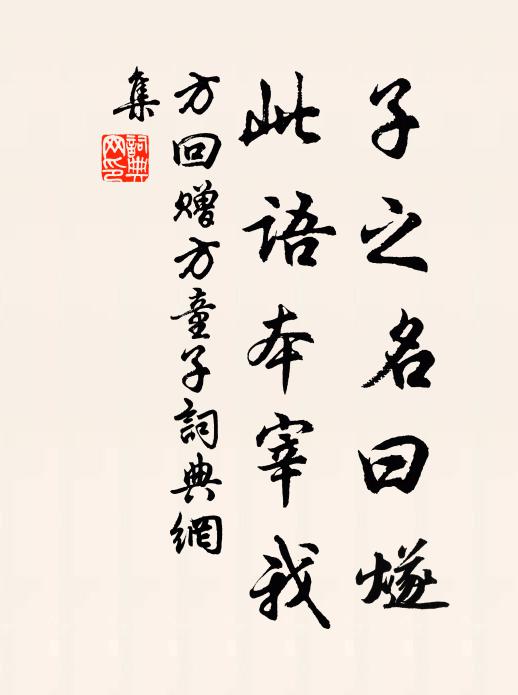 子之名曰燧
此語本宰我
方回贈方童子詞典網
集
詞典網印